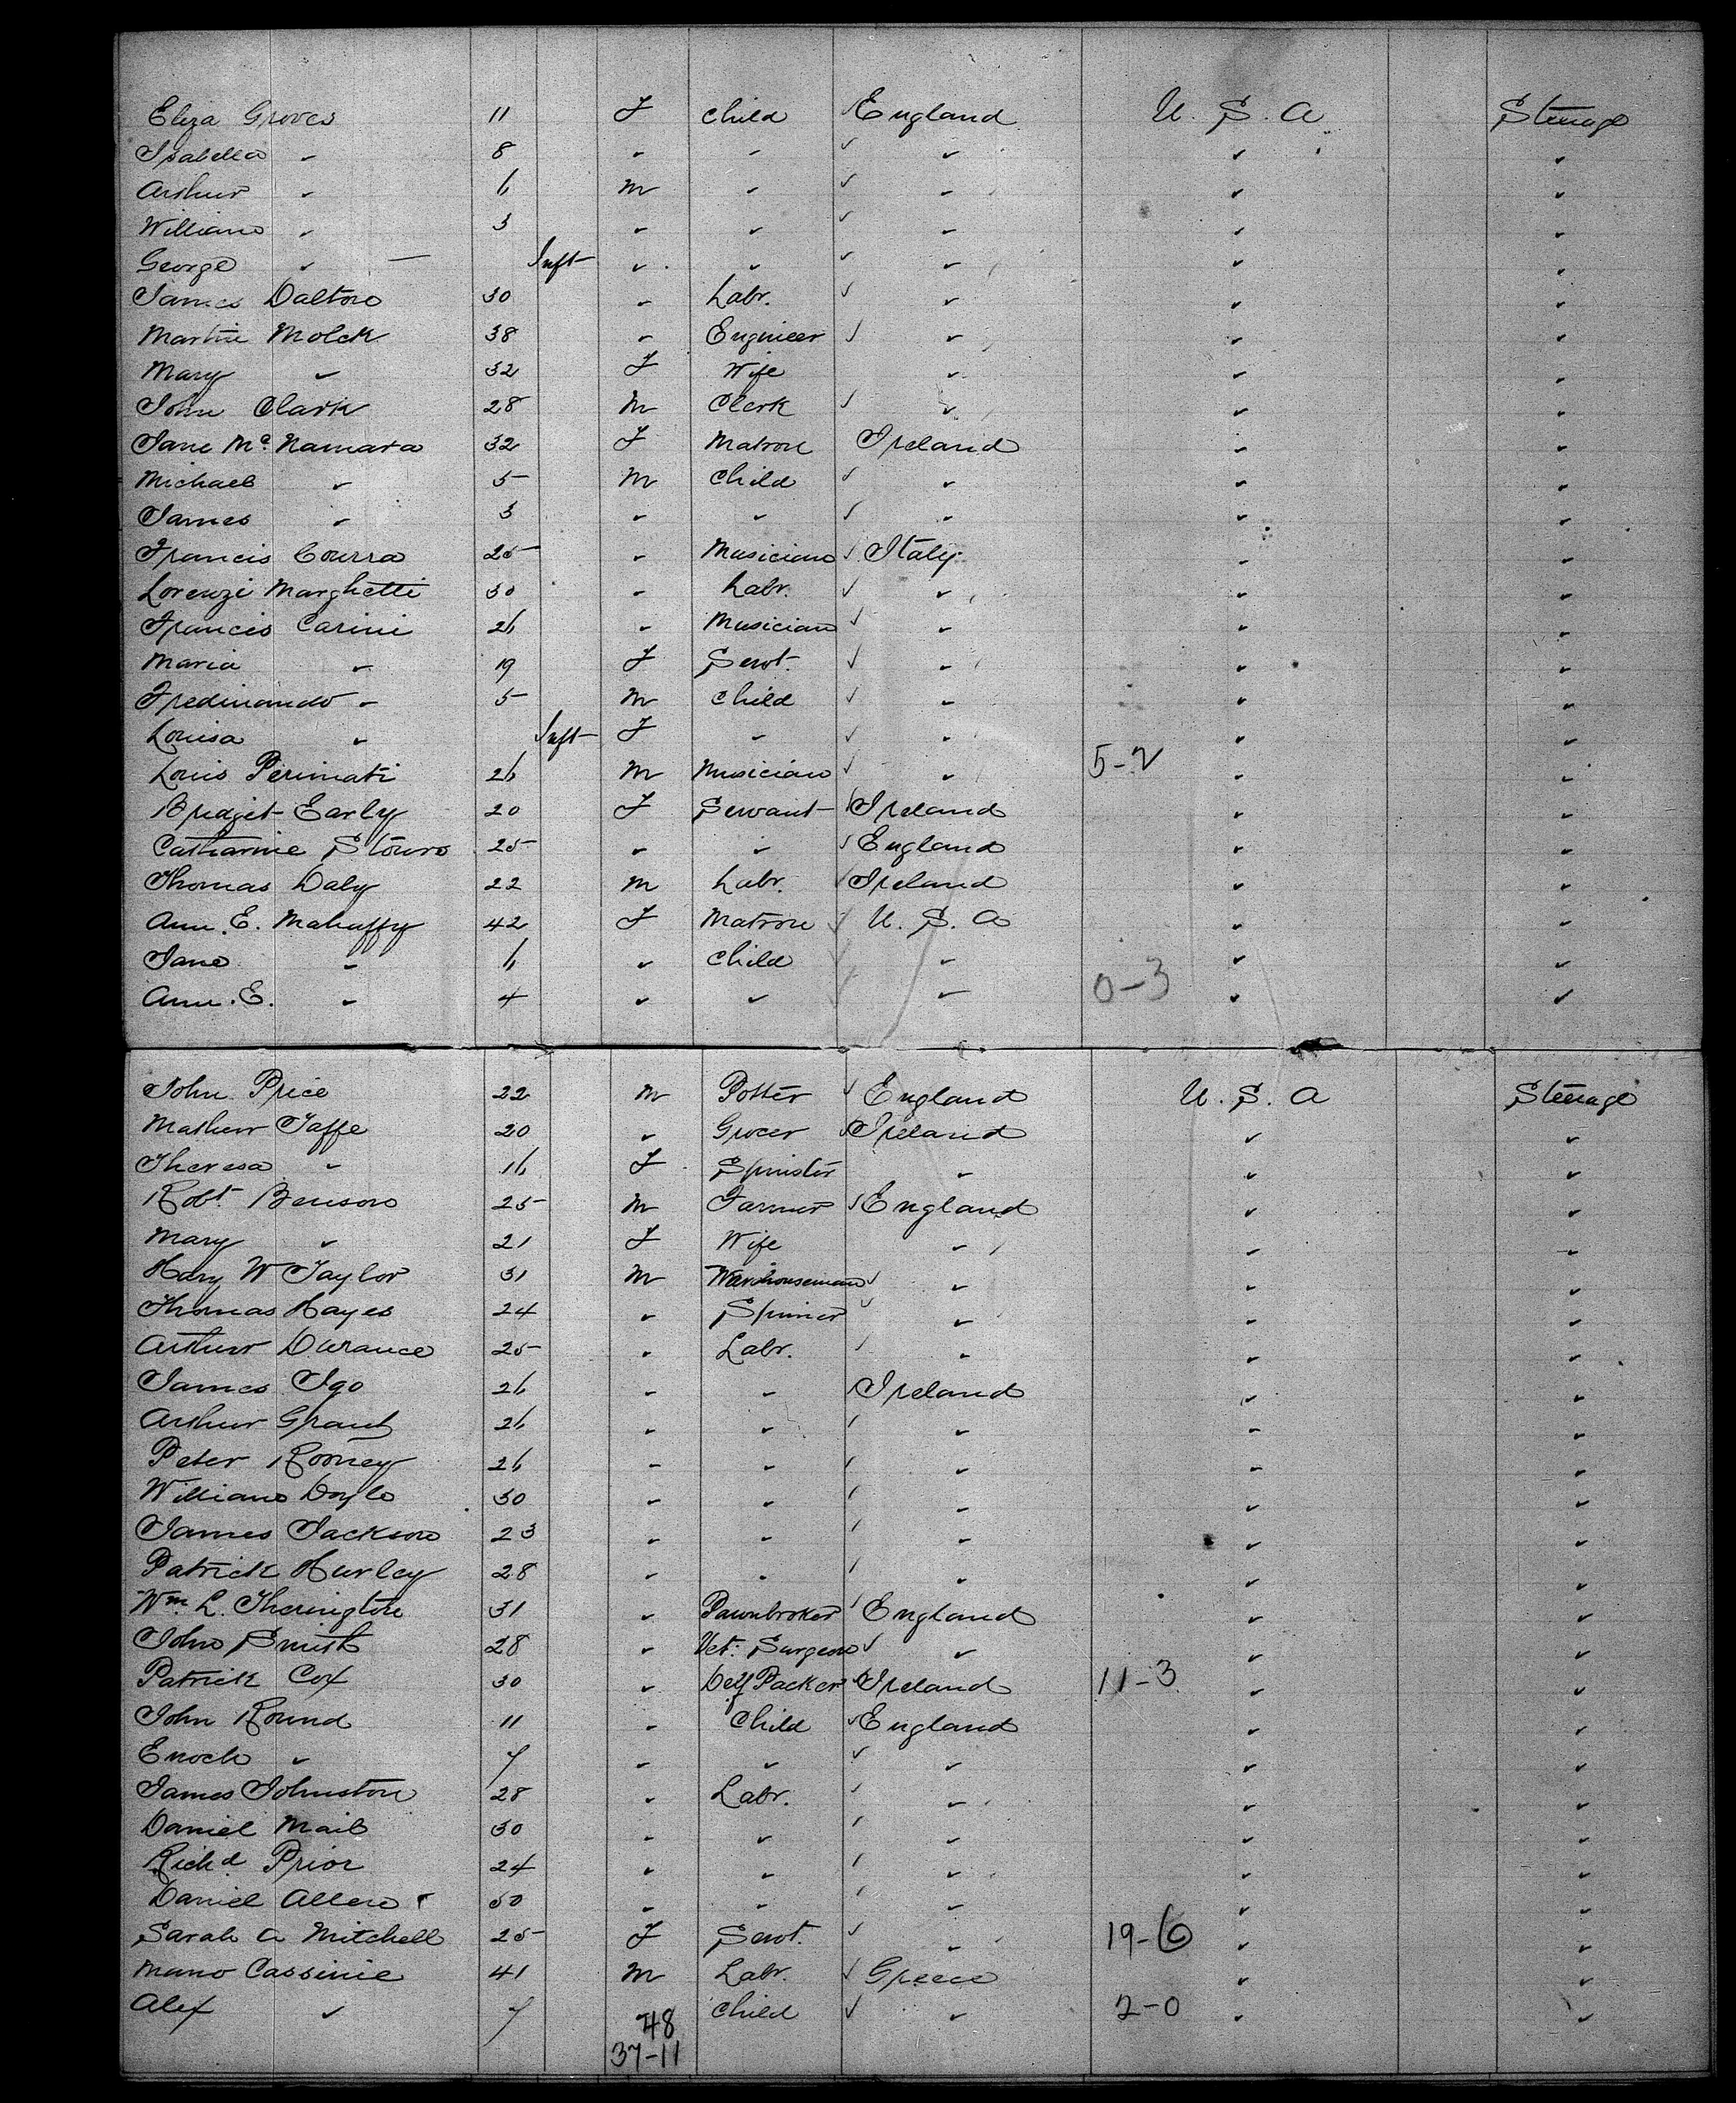 Eliza Groves 11 F Child ✓ England U. S. A Steerage
Isabella " 8 " " ✓ " " "
Arthur " 6 M " ✓ " " "
William " 3 " " ✓ " " "
George " — Inft " " ✓ " " "
James Dalton 30 " Labr. ✓ " " "
Martin Molck 38 " Engineer ✓ " " "
Mary " 32 F Wife " " "
John Clark 28 M Clerk ✓ " " "
Jane Mc Namara 32 F Matron Ireland " "
Michael " 5 M Child ✓ " " "
James " 3 " " ✓ " " "
Francis Courra 25 " Musician ✓ Italy " "
Lorenzi Marghetti 30 " Labr. ✓ " " "
Francis Carini 26 " Musician ✓ " " "
Maria " 19 F Servt. ✓ " " "
Fredinando " 5 M Child ✓ " " "
Louisa " Inft F " ✓ " " "
Louis Perimati 26 M Musician ✓ " 5-2 " "
Bridget Early 20 F Servant ✓ Ireland " "
Catharine Stours 25 " " ✓ England " "
Thomas Daly 22 M Labr. ✓ Ireland " "
Ann. E. Mahuffy 42 F Matron ✓ U. S. A " "
Jane " 6 " Child ✓ " " "
Ann. E. " 4 " " ✓ " 0-3 " "
John Price 22 M Potter ✓ England U. S. A Steerage
Mathew Taffe 20 " Grocer ✓ Ireland " "
Theresa " 16 F Spinster " " "
Robt Benson 25 M Farmer ✓ England " "
Mary " 21 F Wife " " "
Hary W Taylor 31 M Warehouseman ✓ " " "
Thomas Hayes 24 " Spinner ✓ " " "
Arthur Durance 25 " Labr. ✓ " " "
James Igo 26 " " ✓ Ireland " "
Arthur Grant 26 " " ✓ " " "
Peter Rooney 26 " " ✓ " " "
William Doyle 30 " " ✓ " " "
James Jackson 23 " " ✓ " " "
Patrick Hurley 28 " " ✓ " " "
Wm. L. Therington 31 " Pawnbroker ✓ England " "
John Smith 28 " Vet: Surgeon ✓ " " "
Patrick Cox 30 " Delf Packer ✓ Ireland 11-3 " "
John Round 11 " Child ✓ England " "
Enoch " 7 " " ✓ " " "
James Johnston 28 " Labr. ✓ " " "
Daniel Mail 30 " " ✓ " " "
Richd Prior 24 " " ✓ " " "
Daniel Allen 50 " " ✓ " " "
Sarah A Mitchell 25 F Servt. ✓ " 19-6 " "
Mano Cassinie 41 M Labr. ✓ Greece " "
Alex " 7 " Child ✓ " 2-0 " "
48
37-11